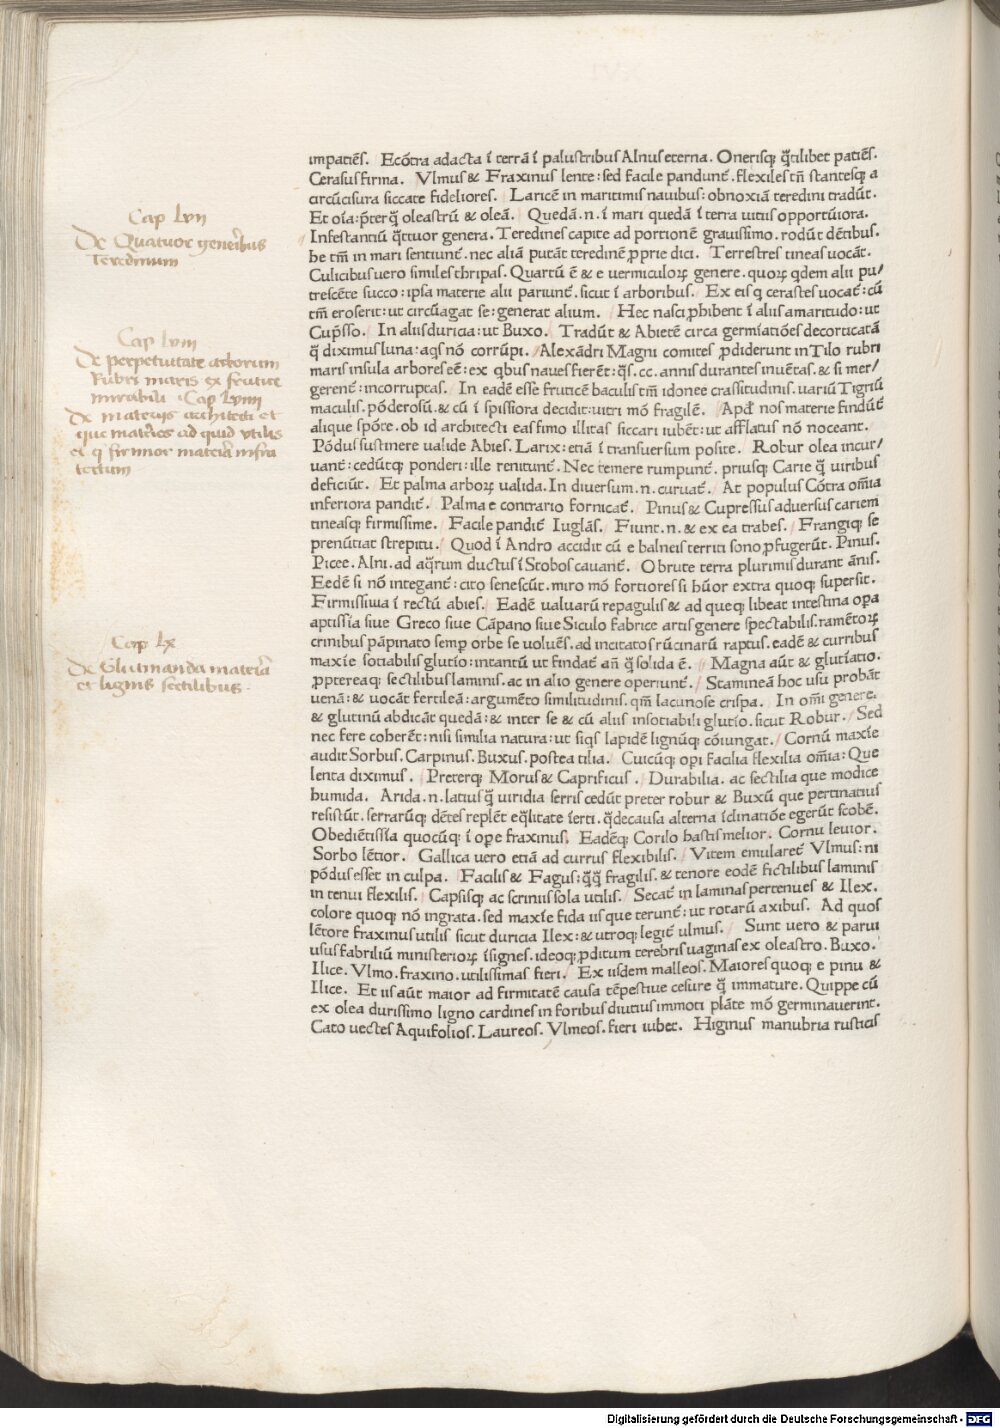 Cap Lvii
De Quatuor generibus
Teredinum
Cap Lviii
De perpetuitate arborum
Rubri maris ex feutice
mirabili . Cap Lviiii
De materijs architecti et
que materies ad quid vtilis
et q firmior materia infra
tectum
Cap Lx
De Glutinanda materia
et lignis sectilibus.
impatiēs. Ecōtra adacta ī terrā ī palustribus Alnus eterna. Onerisq; q̄tilibet patiēs.
Cerasus firma. Vlmus & Fraxinus lente: sed facile pandunt̄. flexiles tn̄ stantesq; a
circūcisura siccate fideliores. Laricē in maritimis nauibus: obnoxiā teredini tradūt.
Et oīa: p̄terq̄ oleastrū & oleā. Quedā. n. ī mari quedā ī terra uitiis opportūiora.
Infestantiū q̄ttuor genera. Teredines capite ad portionē grauissimo. rodūt dētibus.
he tm̄ in mari sentiunt̄. nec aliā putāt teredinē ꝓprie dici. Terrestres tineas uocāt.
Culicibus uero similes thripas. Quartū ē & e uermiculoꝝ genere. quoꝝ qdem alii pu/
trescēte succo: ipsa materie alii pariunt̄. sicut ī arboribus. Ex eis q cerastes uocat̄: cū
tm̄ eroserit: ut circūagat se: generat alium. Hec nasci ꝓhibent ī aliis amaritudo: ut
Cup̄sso. In aliis duricia: ut Buxo. Tradūt & Abietē circa germīatiōes decorticatā
q̄ diximus luna: aqs nō corrūpi. Alexādri Magni comites ꝓdiderunt in Tilo rubri
maris insula arbores eē: ex qbus naues fierēt: q̄s. cc. annis durantes inuētas. & si mer/
gerent̄: incorruptas. In eadē esse fruticē baculis tm̄ idonee crassitudinis. uariū Tigriū
maculis. pōderosū. & cū ī spissiora decidit: uitri mō fragilē. Apd̄ nos materie findūt̄
alique spōte. ob id architecti eas fimo illitas siccari iubēt: ut afflatus nō noceant.
Pōdus sustinere ualide Abies. Larix: etiā ī transuersum posite. Robur olea incur/
uant̄: cedūtq; ponderi: ille renitunt̄. Nec temere rumpunt̄. priusq; Carie q̄ uiribus
deficiūt. Et palma arboꝝ ualida. In diuersum. n. curuat̄. At populus Cōtra om̄ia
inferiora pandit̄. Palma e contrario fornicat̄. Pinus & Cupressus aduersus cariem
tineasq; firmissime. Facile pandit̄ Iuglās. Fiunt. n. & ex ea trabes. Frangiq; se
prenūtiat strepitu. Quod ī Andro accidit cū e balneis territi sono ꝓfugerūt. Pinus.
Picee. Alni. ad aq̄rum ductus ī Stobos cauant̄. Obrute terra plurimis durant ānis.
Eedē si nō integant̄: cito senescūt. miro mō fortiores si hūor extra quoq; supersit.
Firmissiwa ī rectū abies. Eadē ualuarū repagulis & ad queq; libeat intestina oꝑa
aptissīa siue Greco siue Cāpano siue Siculo fabrice artis genere spectabilis. ramētoꝝ
crinibus pāpinato semꝑ orbe se voluēs. ad incitatos rūcinarū raptus. eadē & curribus
maxīe sotiabilis glutio: intantū ut findat̄ an̄ q̄ solida ē. Magna aūt & glutīatio.
ꝓpterea q; sectilibus laminis. ac in alio genere operiunt̄. Stamineā hoc usu probāt
uenā: & uocāt fertileā: argumēto similitudinis. qm̄ lacunose crispa. In om̄i genere.
& glutinū abdicāt quedā: & inter se & cū aliis insotiabili glutīo. sicut Robur. Sed
nec fere coherēt: nisi similia natura: ut siqs lapidē lignūq; cōiungat. Cornū maxīe
audit Sorbus. Carpinus. Buxus. postea tilia. Cuicūq; oꝑi facilia flexilia om̄ia: Que
lenta diximus. Preterq; Morus & Caprificus. Durabilia. ac sectilia que modice
humida. Arida. n. latius q̄ uiridia serris cedūt preter robur & Buxū que pertinatius
resistūt. serrarūq; dētes replēt eq̄litate īerti. q̄decausa alterna īclinatiōe egerūt scobē.
Obediētissīa quocūq; ī oꝑe fraxinus. Eadēq; Corilo hastis melior. Cornu leuior.
Sorbo lētior. Gallica uero etiā ad currus flexibilis. Vitem emularet̄ Vlmus: ni
pōdus esset in culpa. Facilis & Fagus: q̄q̄ fragilis. & tenore eodē fictilibus laminis
in tenui flexilis. Capsisq; ac scriniis sola utilis. Secat̄ in laminas pertenues & Ilex.
colore quoq; nō ingrata. sed maxīe fida iis que terunt̄: ut rotarū axibus. Ad quos
lētore fraxinus utilis sicut duricia Ilex: & utroq; legit̄ ulmus. Sunt uero & parui
usus fabriliū ministerioꝝ īsignes. ideoq; ꝓditum terebris uaginas ex oleastro. Buxo.
Ilice. Vlmo. fraxino. utilissimas fieri. Ex iisdem malleos. Maiores quoq; e pinu &
Ilice. Et iis aūt maior ad firmitatē causa tēpestiue cesure q̄ immature. Quippe cū
ex olea durissimo ligno cardines in foribus diutius immoti plāte mō germinauerint.
Cato uectes Aquifolios. Laureos. Vlmeos. fieri iubet. Higinus manubria rusticis
Digitalisierung gefördert durch die Deutsche Forschungsgemeinschaft - DFG